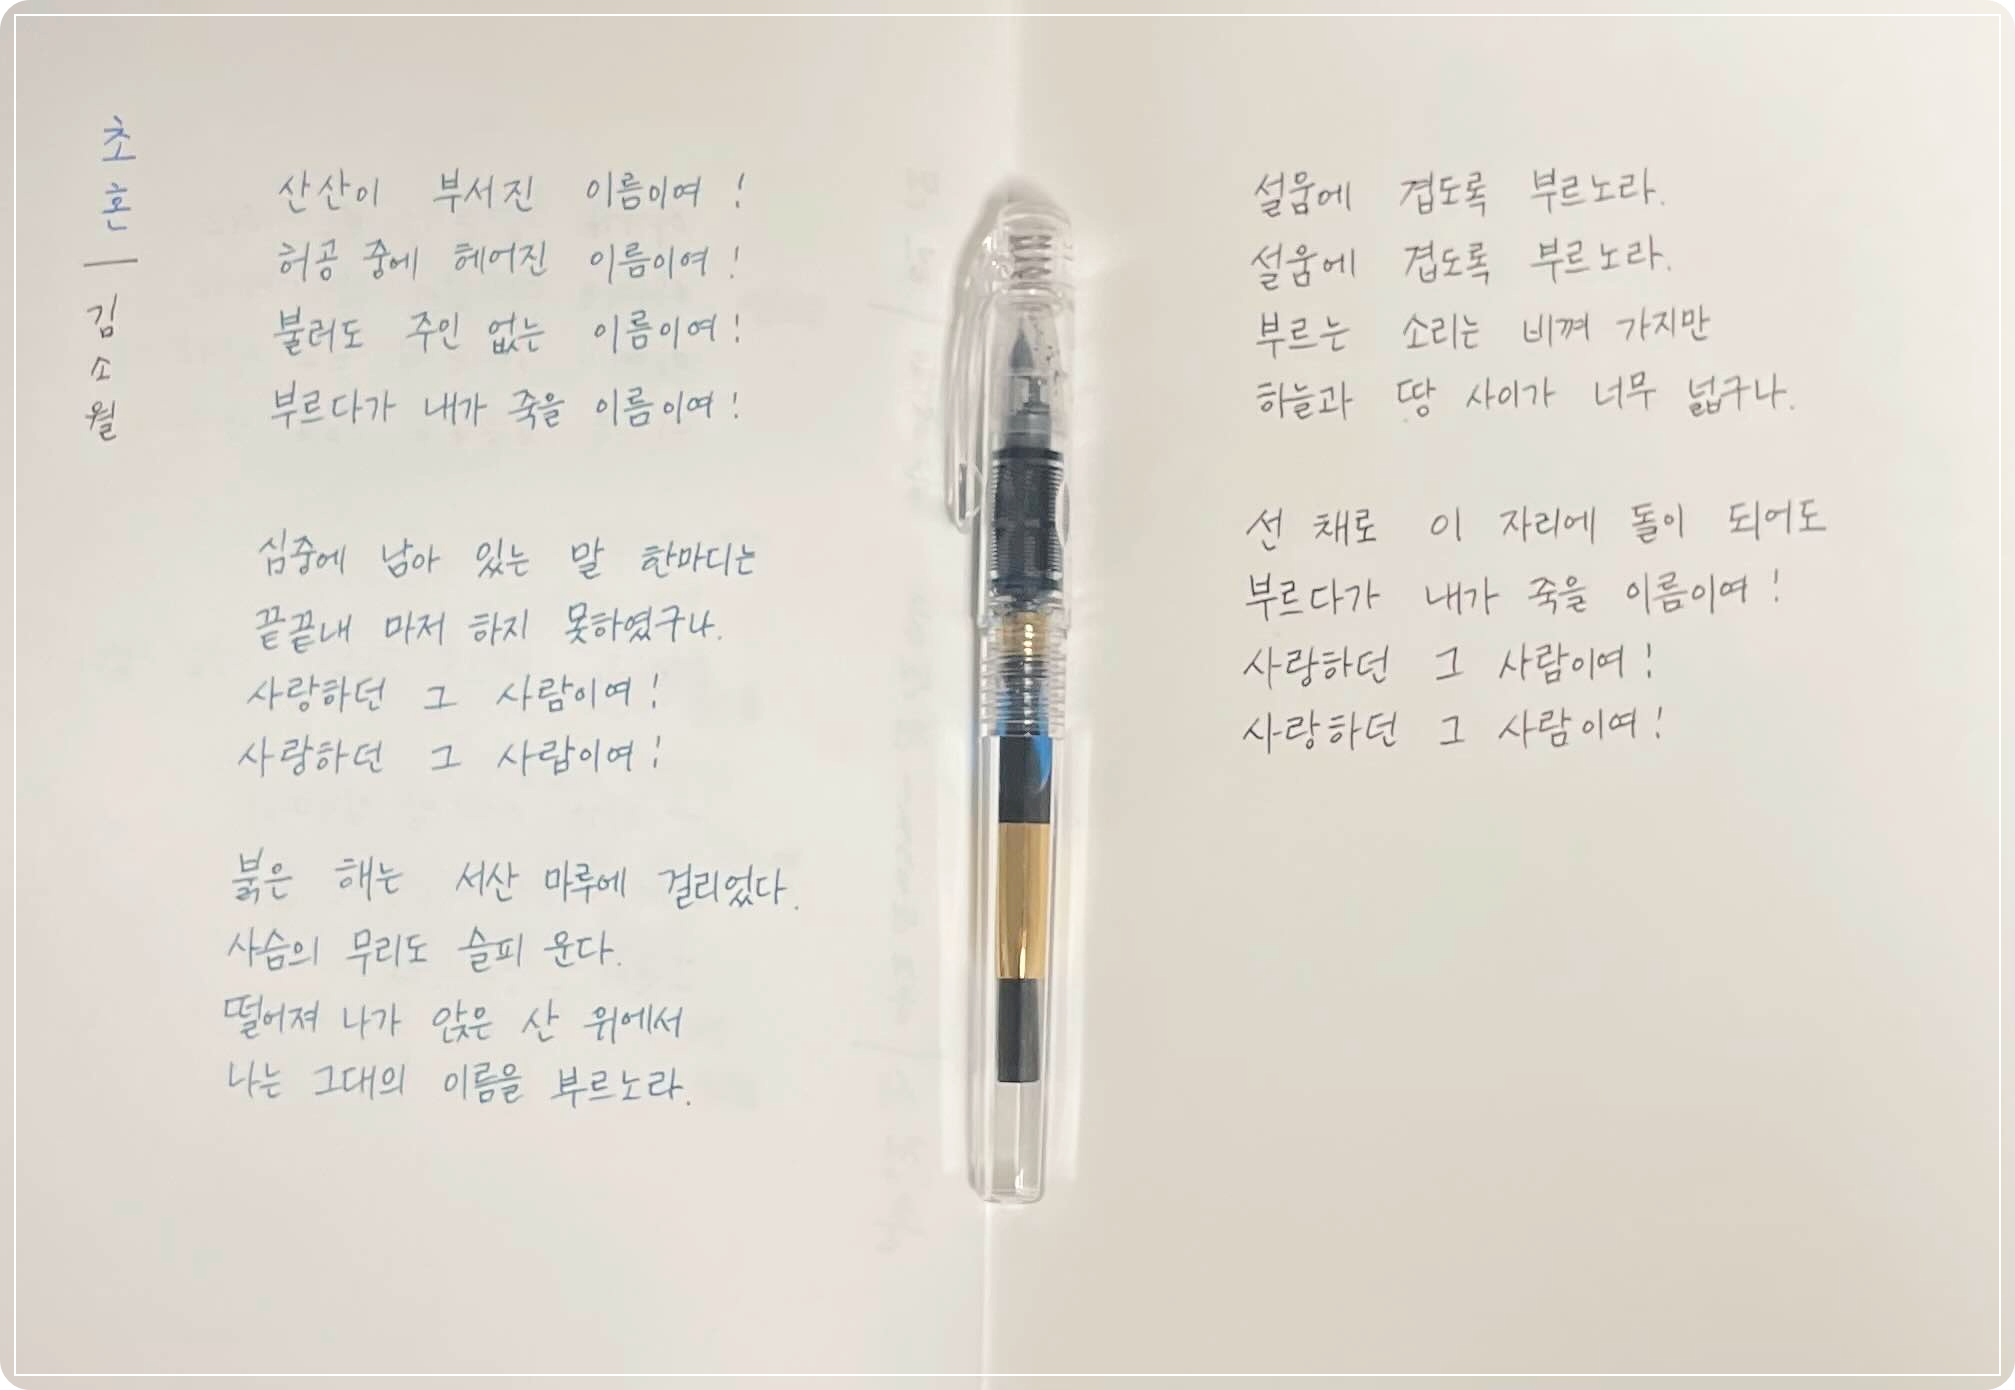 초혼 — 김소월
산산이 부서진 이름이여!
허공 중에 헤어진 이름이여!
불러도 주인 없는 이름이여!
부르다가 내가 죽을 이름이여!
심중에 남아 있는 말 한마디는
끝끝내 마저 하지 못하였구나.
사랑하던 그 사람이여!
사랑하던 그 사람이여!
붉은 해는 서산 마루에 걸리었다.
사슴의 무리도 슬피 운다.
떨어져 나가 앉은 산 위에서
나는 그대의 이름을 부르노라.
설움에 겹도록 부르노라.
설움에 겹도록 부르노라.
부르는 소리는 비껴 가지만
하늘과 땅 사이가 너무 넓구나.
선 채로 이 자리에 돌이 되어도
부르다가 내가 죽을 이름이여!
사랑하던 그 사람이여!
사랑하던 그 사람이여!